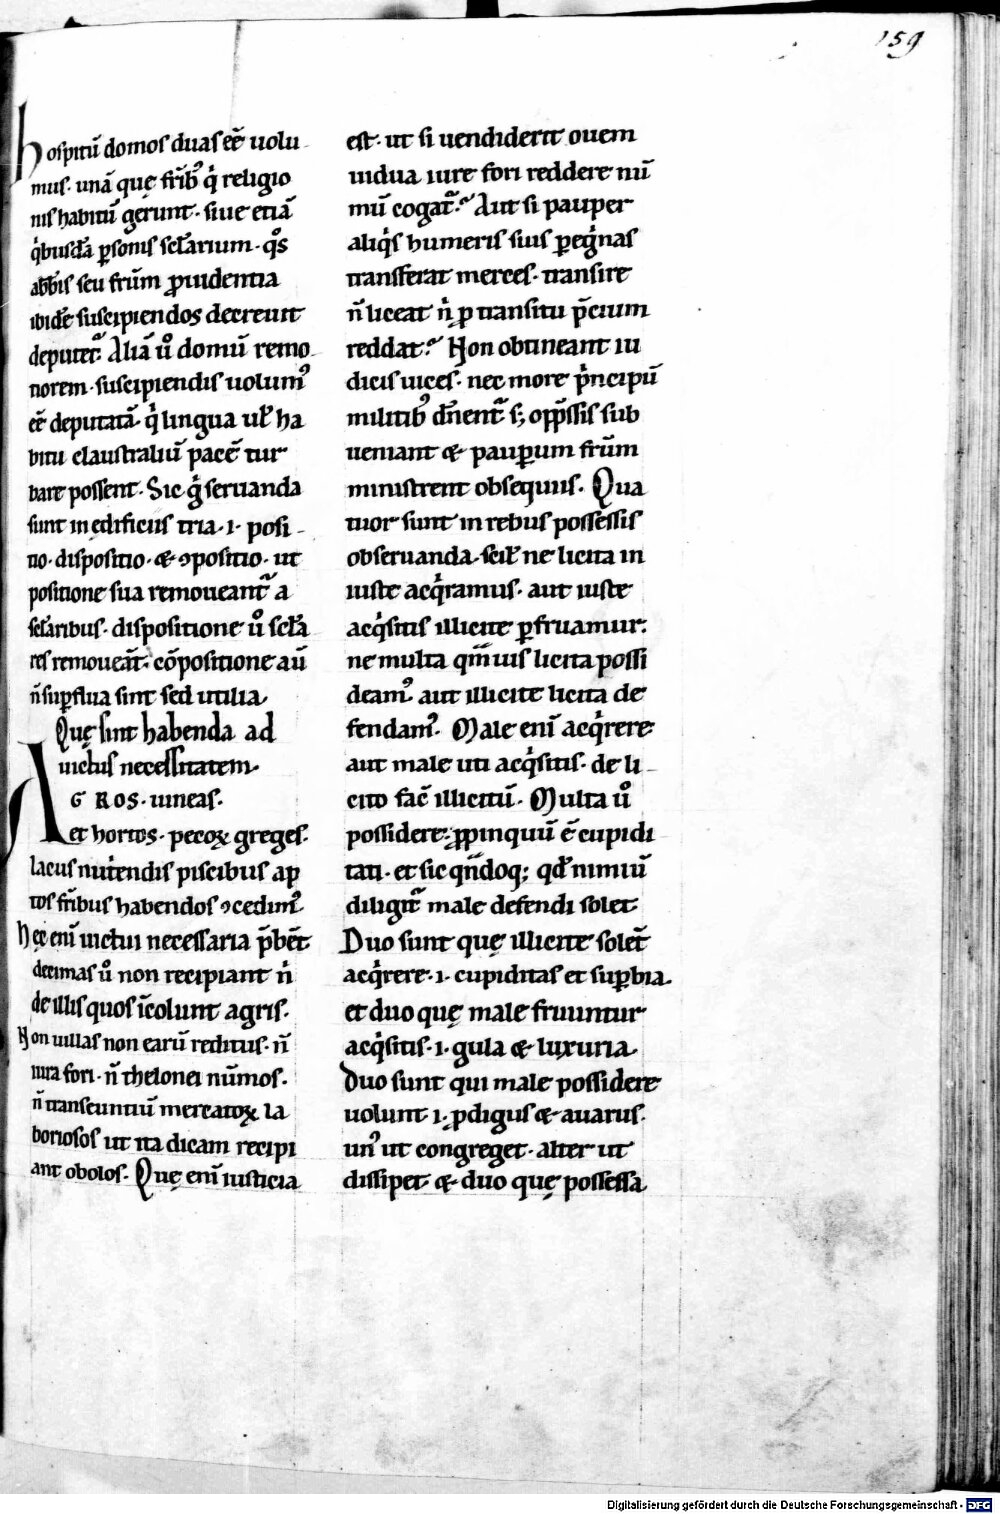 159
hospitiū domos duas eē uolu
mus. unā quę fr̄ib᾽ qͥ religio
nis habitū gerunt. siue etiā
qͥbusdā ꝑsonis sc̄larium. qͦs
abb̄is seu fr̄um ꝓuidentia
ibidē suscipiendos decreuit
deputet᷑. Aliā uͦ domū remo
norem. suscipiendis uolum᾽
eē deputatā. qͥ lingua ul̄ ha
bitu claustraliū pacē tur
bare possent. Sic gͦ seruanda
sunt in ędificiis tria .i. posi
tio. dispositio. & ꝯpositio. ut
positione sua remoueant᷑ a
sc̄laribus. dispositione uͦ sc̄la
res remoueāt᷑. cōpositione aū
n̄ suꝑflua sint sed utilia.
Quę sint habenda ad
uictus necessitatem.
AGROS. uineas.
et hortos. pecoꝝ greges.
lacus nutͥendis piscibus ap
tos fr̄ibus habendos ꝯcedim᾽.
Hęc enī uictui necessaria p̄bēt
decimas uͦ non recipiant nͥ
de illis quos īcolunt agris.
Non uillas non earū reditus. n̄
iura fori. n̄ thelonei nūmos.
n̄ transeuntiū mercatoꝝ la
boriosos ut ita dicam recipi
ant obolos. Quę enī iusticia
est. ut si uendiderit ouem
uidua iure fori reddere nū
mū cogat᷑? Aut si pauper
aliqͥs humeris suis ꝑegͥnas
transferat merces. transire
n̄ liceat nͥ ꝓ transitu p̄cium
reddat? Non obtineant iu
dicis uices. nec more pͥncipū
militib᾽ dn̄ent᷑ s; opp̄ssis sub
ueniant & pauꝑum fr̄um
ministrent obsequiis. Qua
tuor sunt in rebus possessis
obseruanda. scil̄ ne licita in
iuste acqͥramus. aut iuste
acqͥsitis illicite ꝑfruamur.
ne multa qm̄uis licita possi
deam᾽ aut illicite licita de
fendam᾽. Male enī acqͥrere
aut male uti acqͥsitis. de li
cito fac̄ illicitū. Multa uͦ
possidere. ꝓpinquū ē cupidi
tati. et sic qn̄doq; qd̄ nimiū
diligit᷑ male defendi solet.
Duo sunt quę illicite solēt
acqͥrere .i. cupiditas et suꝑbia.
et duo quę male fruuntur
acqͥsitis .i. gula & luxuria.
Duo sunt qui male possidere
uolunt .i. ꝓdigus & auarus.
un᾽ ut congreget. alter ut
dissipet & duo quę possessa
Digitalisierung gefördert durch die Deutsche Forschungsgemeinschaft - DFG